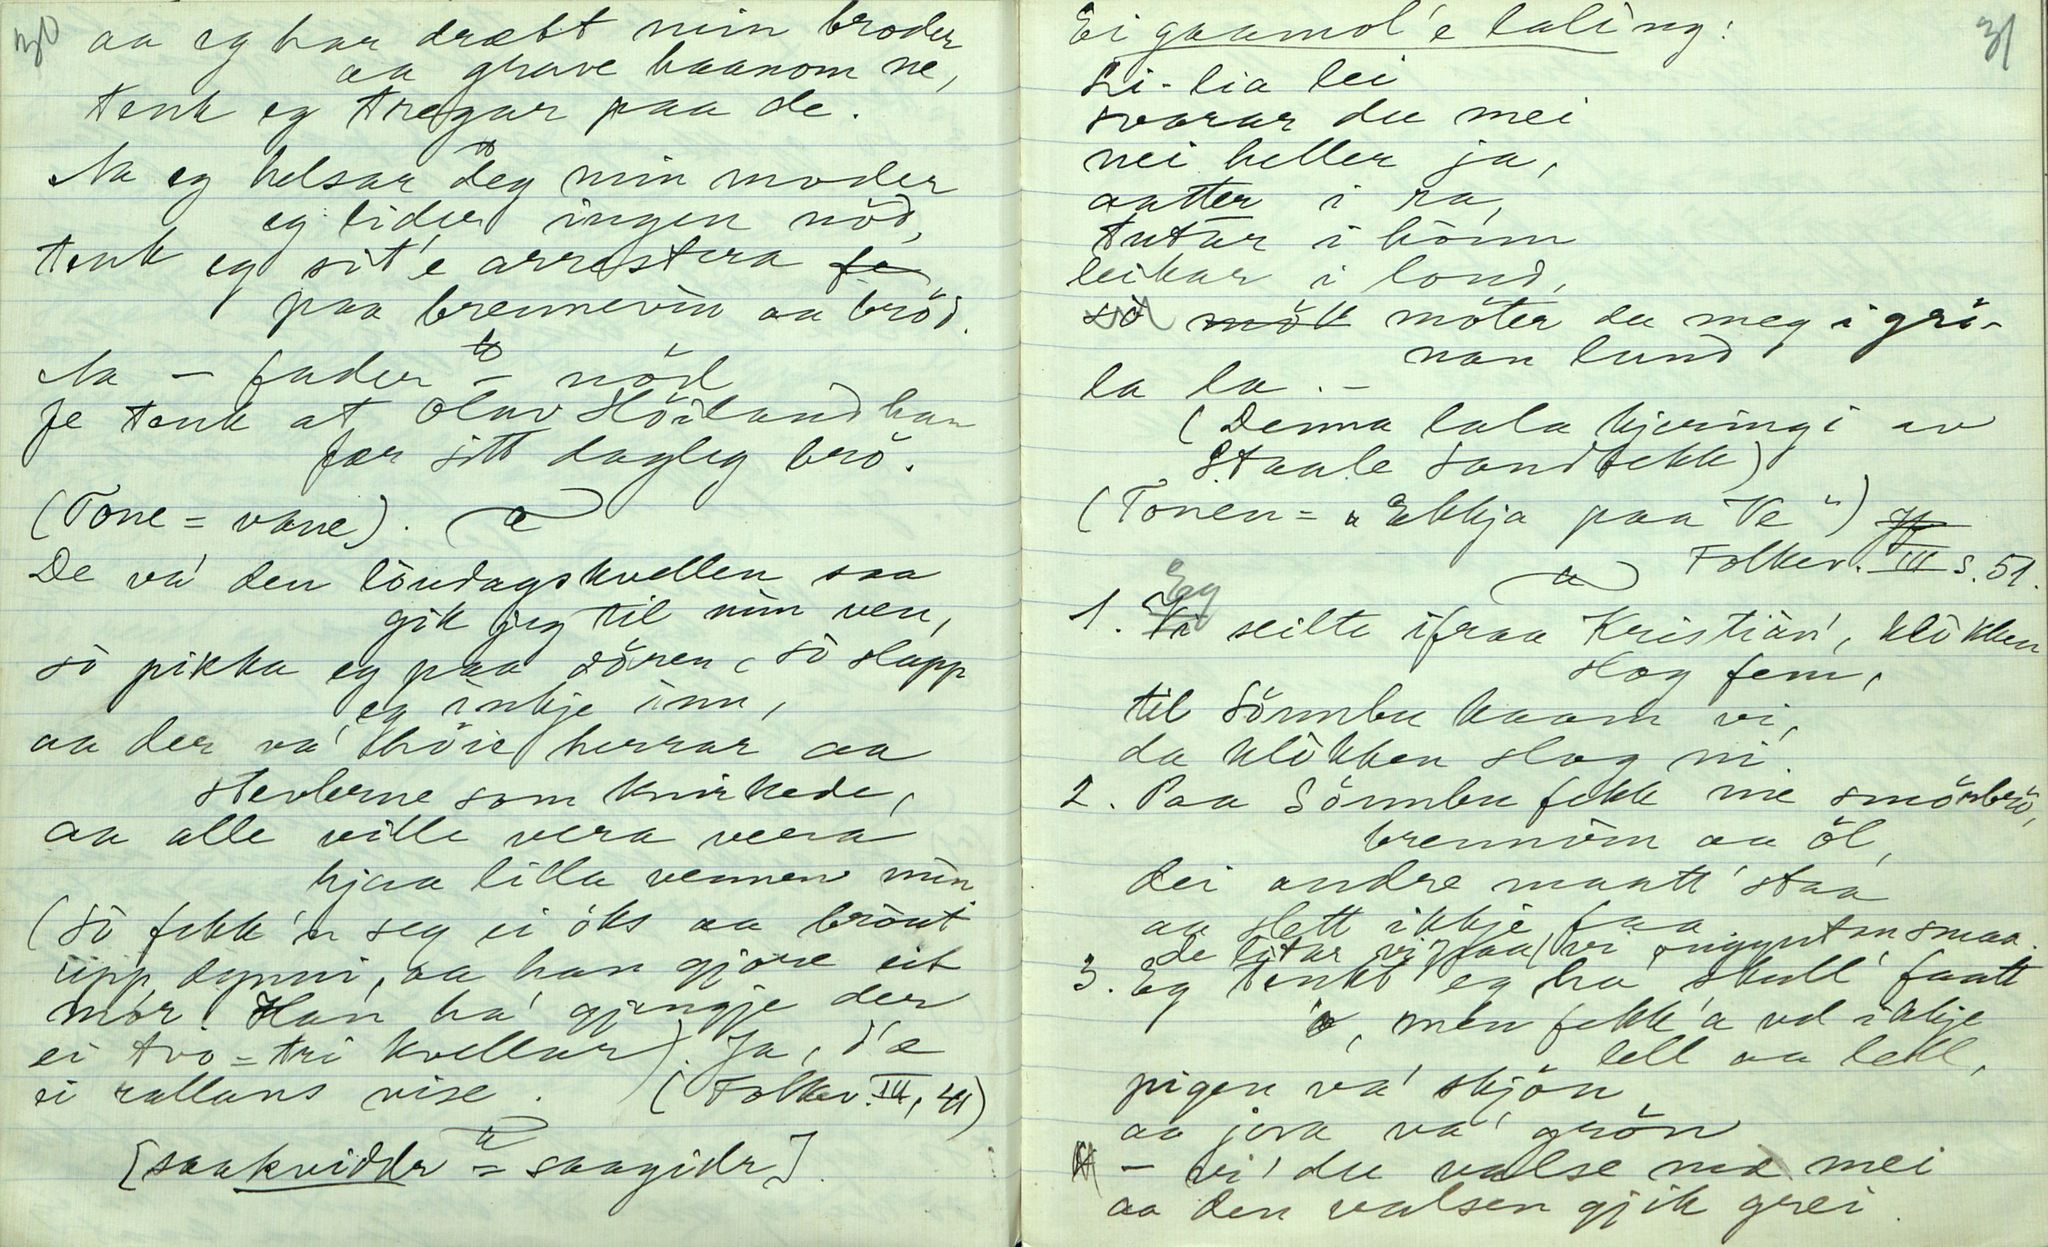 30
aa eg har dræbt min broder
aa grave haanom ne,
tenk eg tregar paa de.
Aa eg helsar deg min moder
eg lider ingen nöd,
tenk eg sit'e arrestera fe
paa brennevin aa bröd.
Aa – fader – nöd
Je tenk at Olav Höiland han
fær sitt dagleg brö.
(Tone = vane).
De va' den löndagskvellen saa
gik jeg til min ven,
sò pikka eg paa dören, sò slapp
eg inkje inn,
aa der va' höie herrar aa
stevlerne som knirkede,
aa alle ville vera vera
hjaa lilla vennen min
(Sò fekk'n seg ei öks aa bròut
upp dynni, aa han gjore eit
mor. Han ha' gjengje der
ei tvo-tri kvellar). Ja, d'æ
ei rallans vise. (Folkev. III, 41)
[saakviddr = saagidr].
31
Ei gaamol'e laling:
Li-lia lei
svarar du mei
nei heller ja,
aatter i ra,
tutar i hònn
leikar i lond,
sò mök möter du meg i grö-
nan lund
la la. –
(Denna lala kjeringi av
Staale Sandbekk)
(Tonen = "Ekkja paa Ve")
Folkev. III s. 51.
Eg
1. Vi seilte ifraa Kristian', klòkken
slog fem,
til Sönnbu kaam vi,
da klòkken slog ni.
2. Paa Sönnbu fekk me smörbrö,
brennvin aa öl,
dei andre maatt' staa
aa slett ikkje faa
de litar vi paa, vi onggutan smaa.
3. Eg tenkt' eg ha' skull' faatt
'a, men fekk'a vel ikkje
lell aa lell,
pigen va' skjön
aa jora va' grön
– vi' du valse med mei
aa den valsen gjik grei.